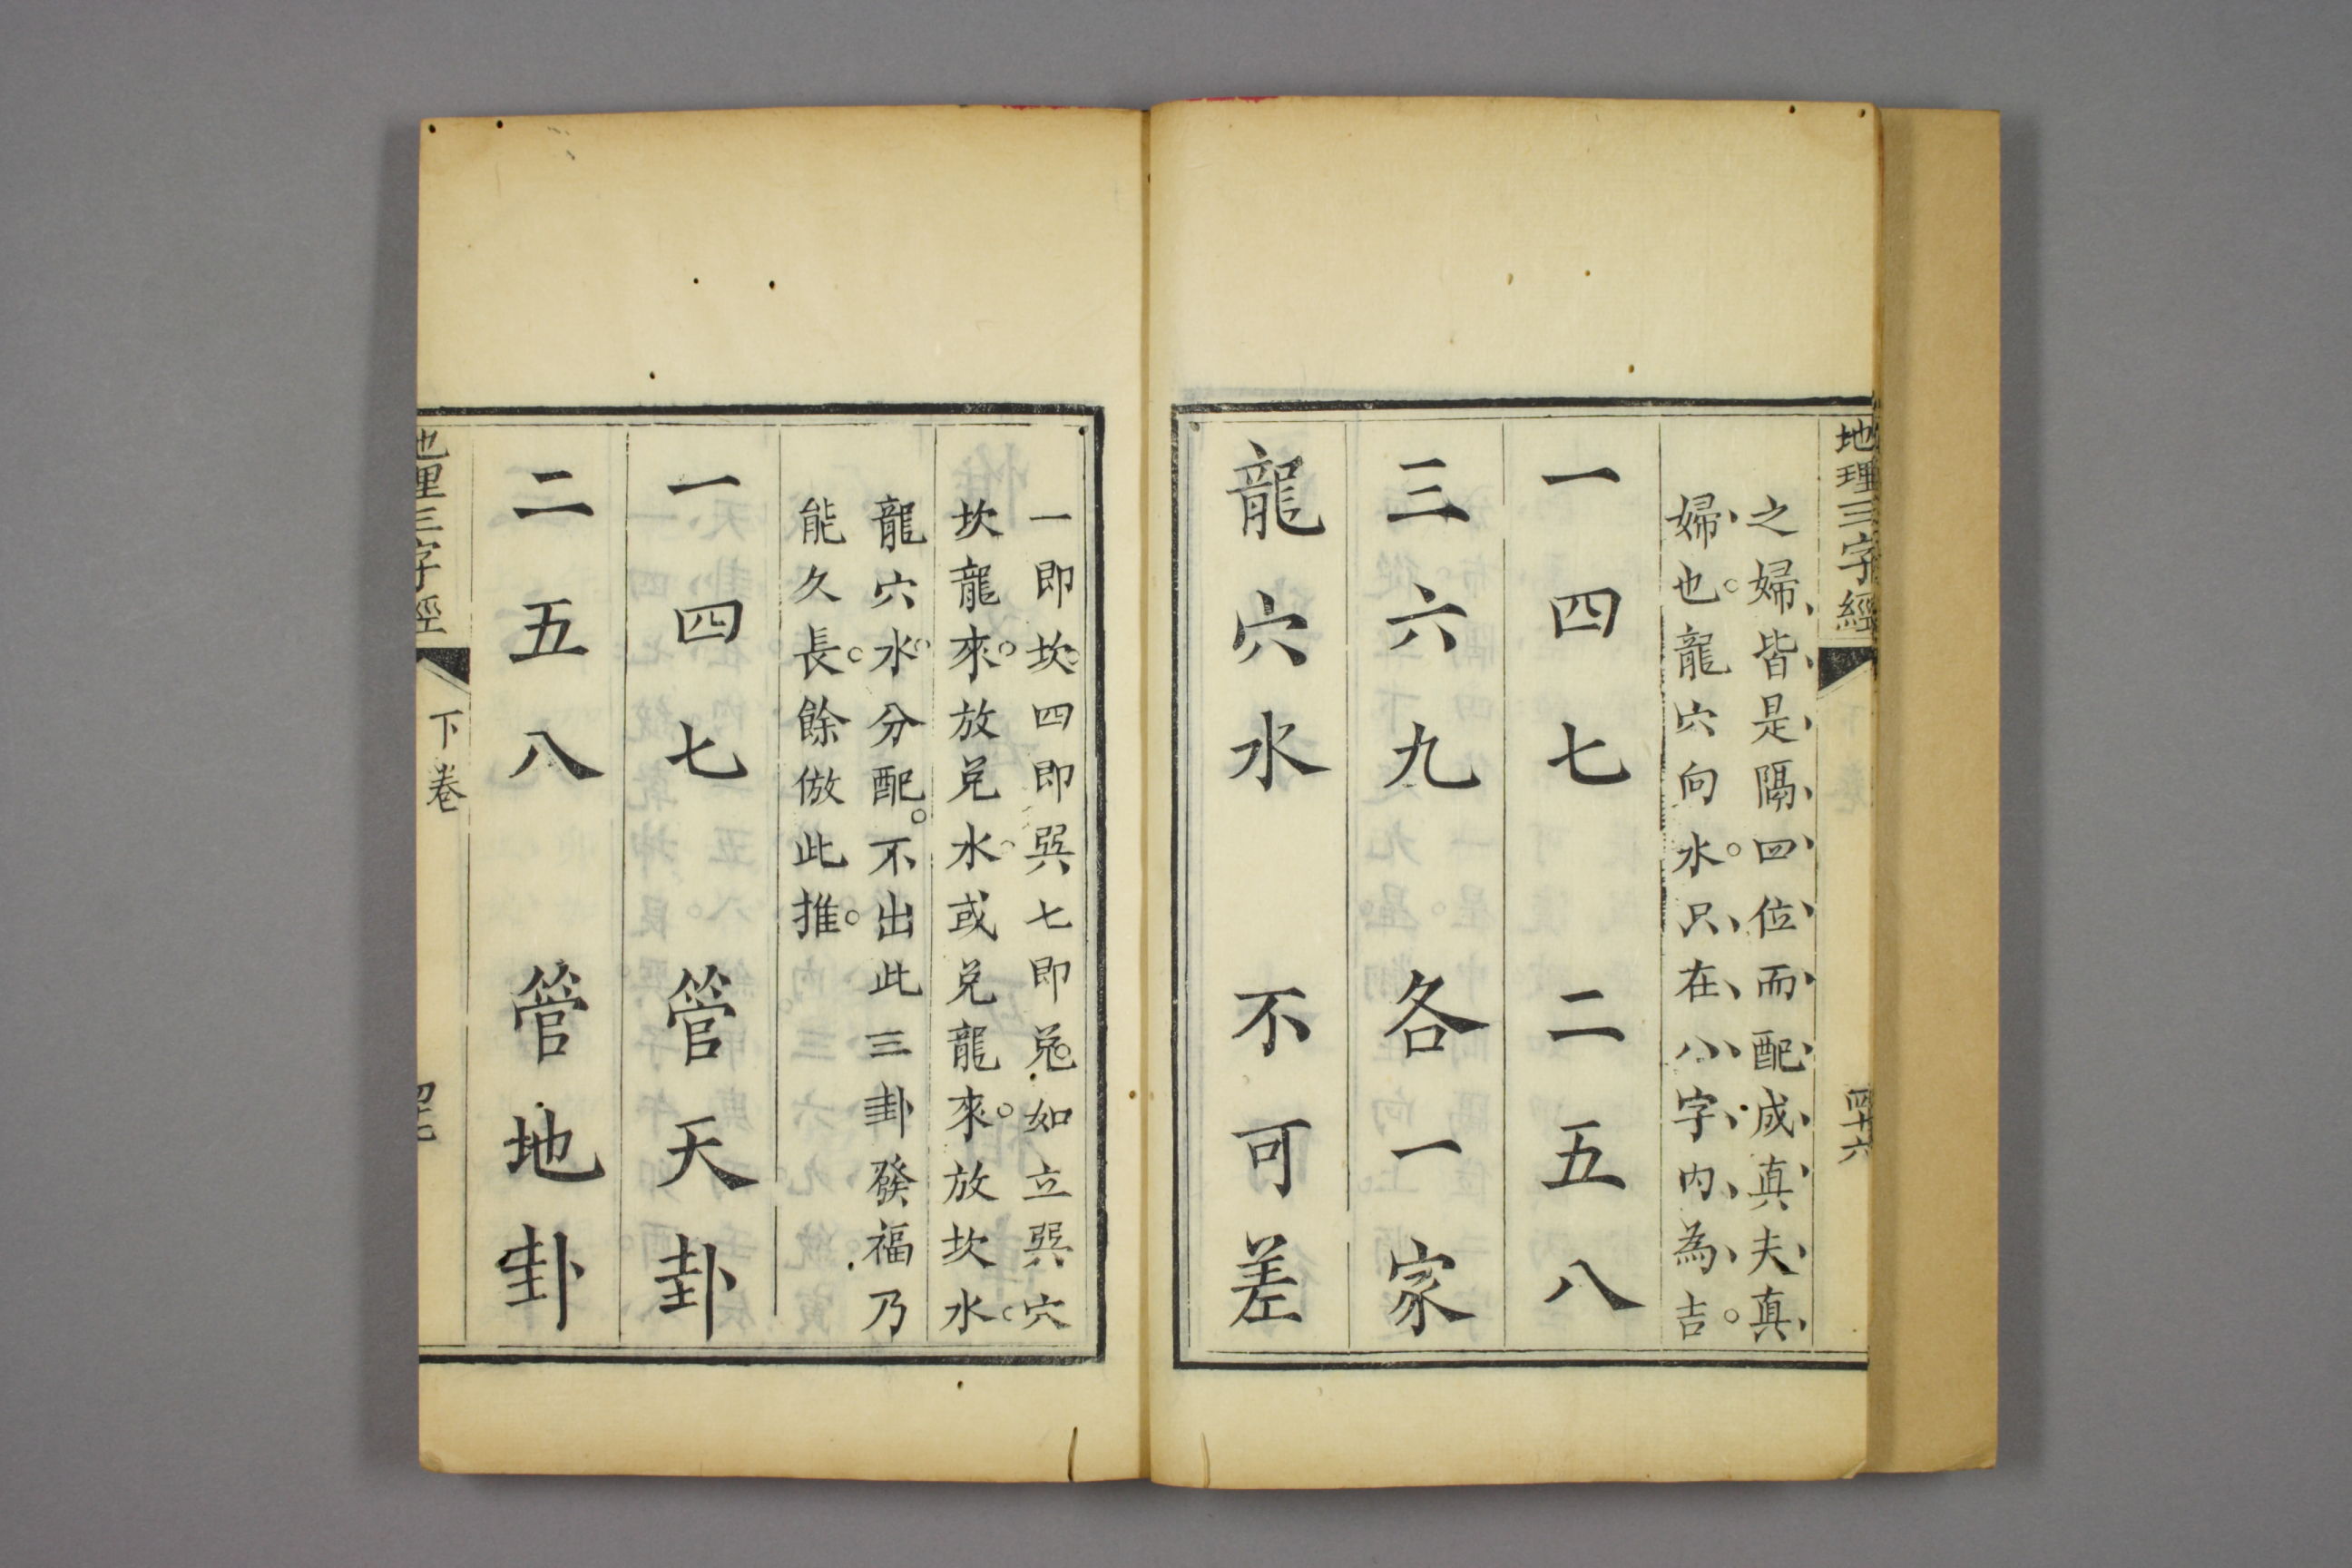 地理三字經
四十六
之婦皆是隔四位而配成真夫真
婦也。龍穴向水。只在八字内為吉。
一四七 二五八
三六九 各一家
龍穴水 不可差
一即坎四即巽七即兌。如立巽穴
坎龍來。放兌水。或兌龍來。放坎水。
龍穴水。分配。不出此三卦發福乃
能久長。餘倣此推。
一四七 管天卦
二五八 管地卦
地理三字經
下卷